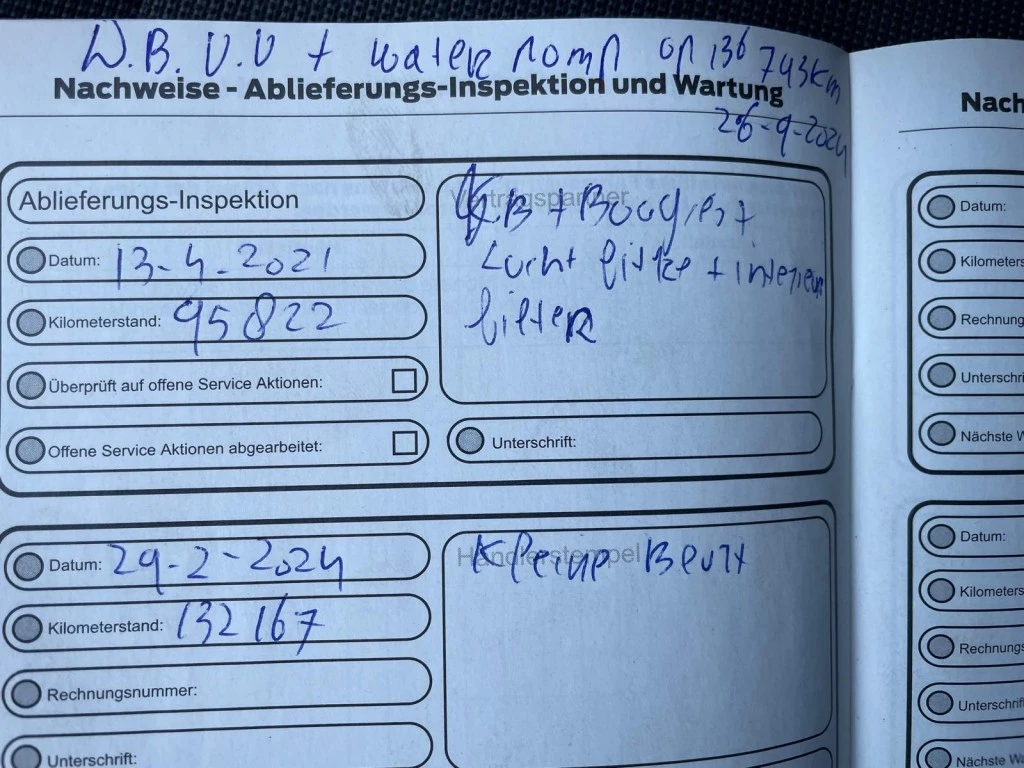 D.B. V.V + water pomp op 136 743km
Nachweise - Ablieferungs-Inspektion und Wartung
26-9-2024
Ablieferungs-Inspektion
Datum: 13-4-2021
Kilometerstand: 95822
Überprüft auf offene Service Aktionen:
Offene Service Aktionen abgearbeitet:
Vertragspartner
K.B + Bougies +
Lucht filter + interieur
filter
Unterschrift:
Datum: 29-2-2024
Kilometerstand: 132167
Rechnungsnummer:
Unterschrift:
Händlerstempel
Kleine Beurt
Nach
Datum:
Kilometers
Rechnung
Unterschri
Nächste W
Datum:
Kilometers
Rechnungs
Unterschrif
Nächste Wa